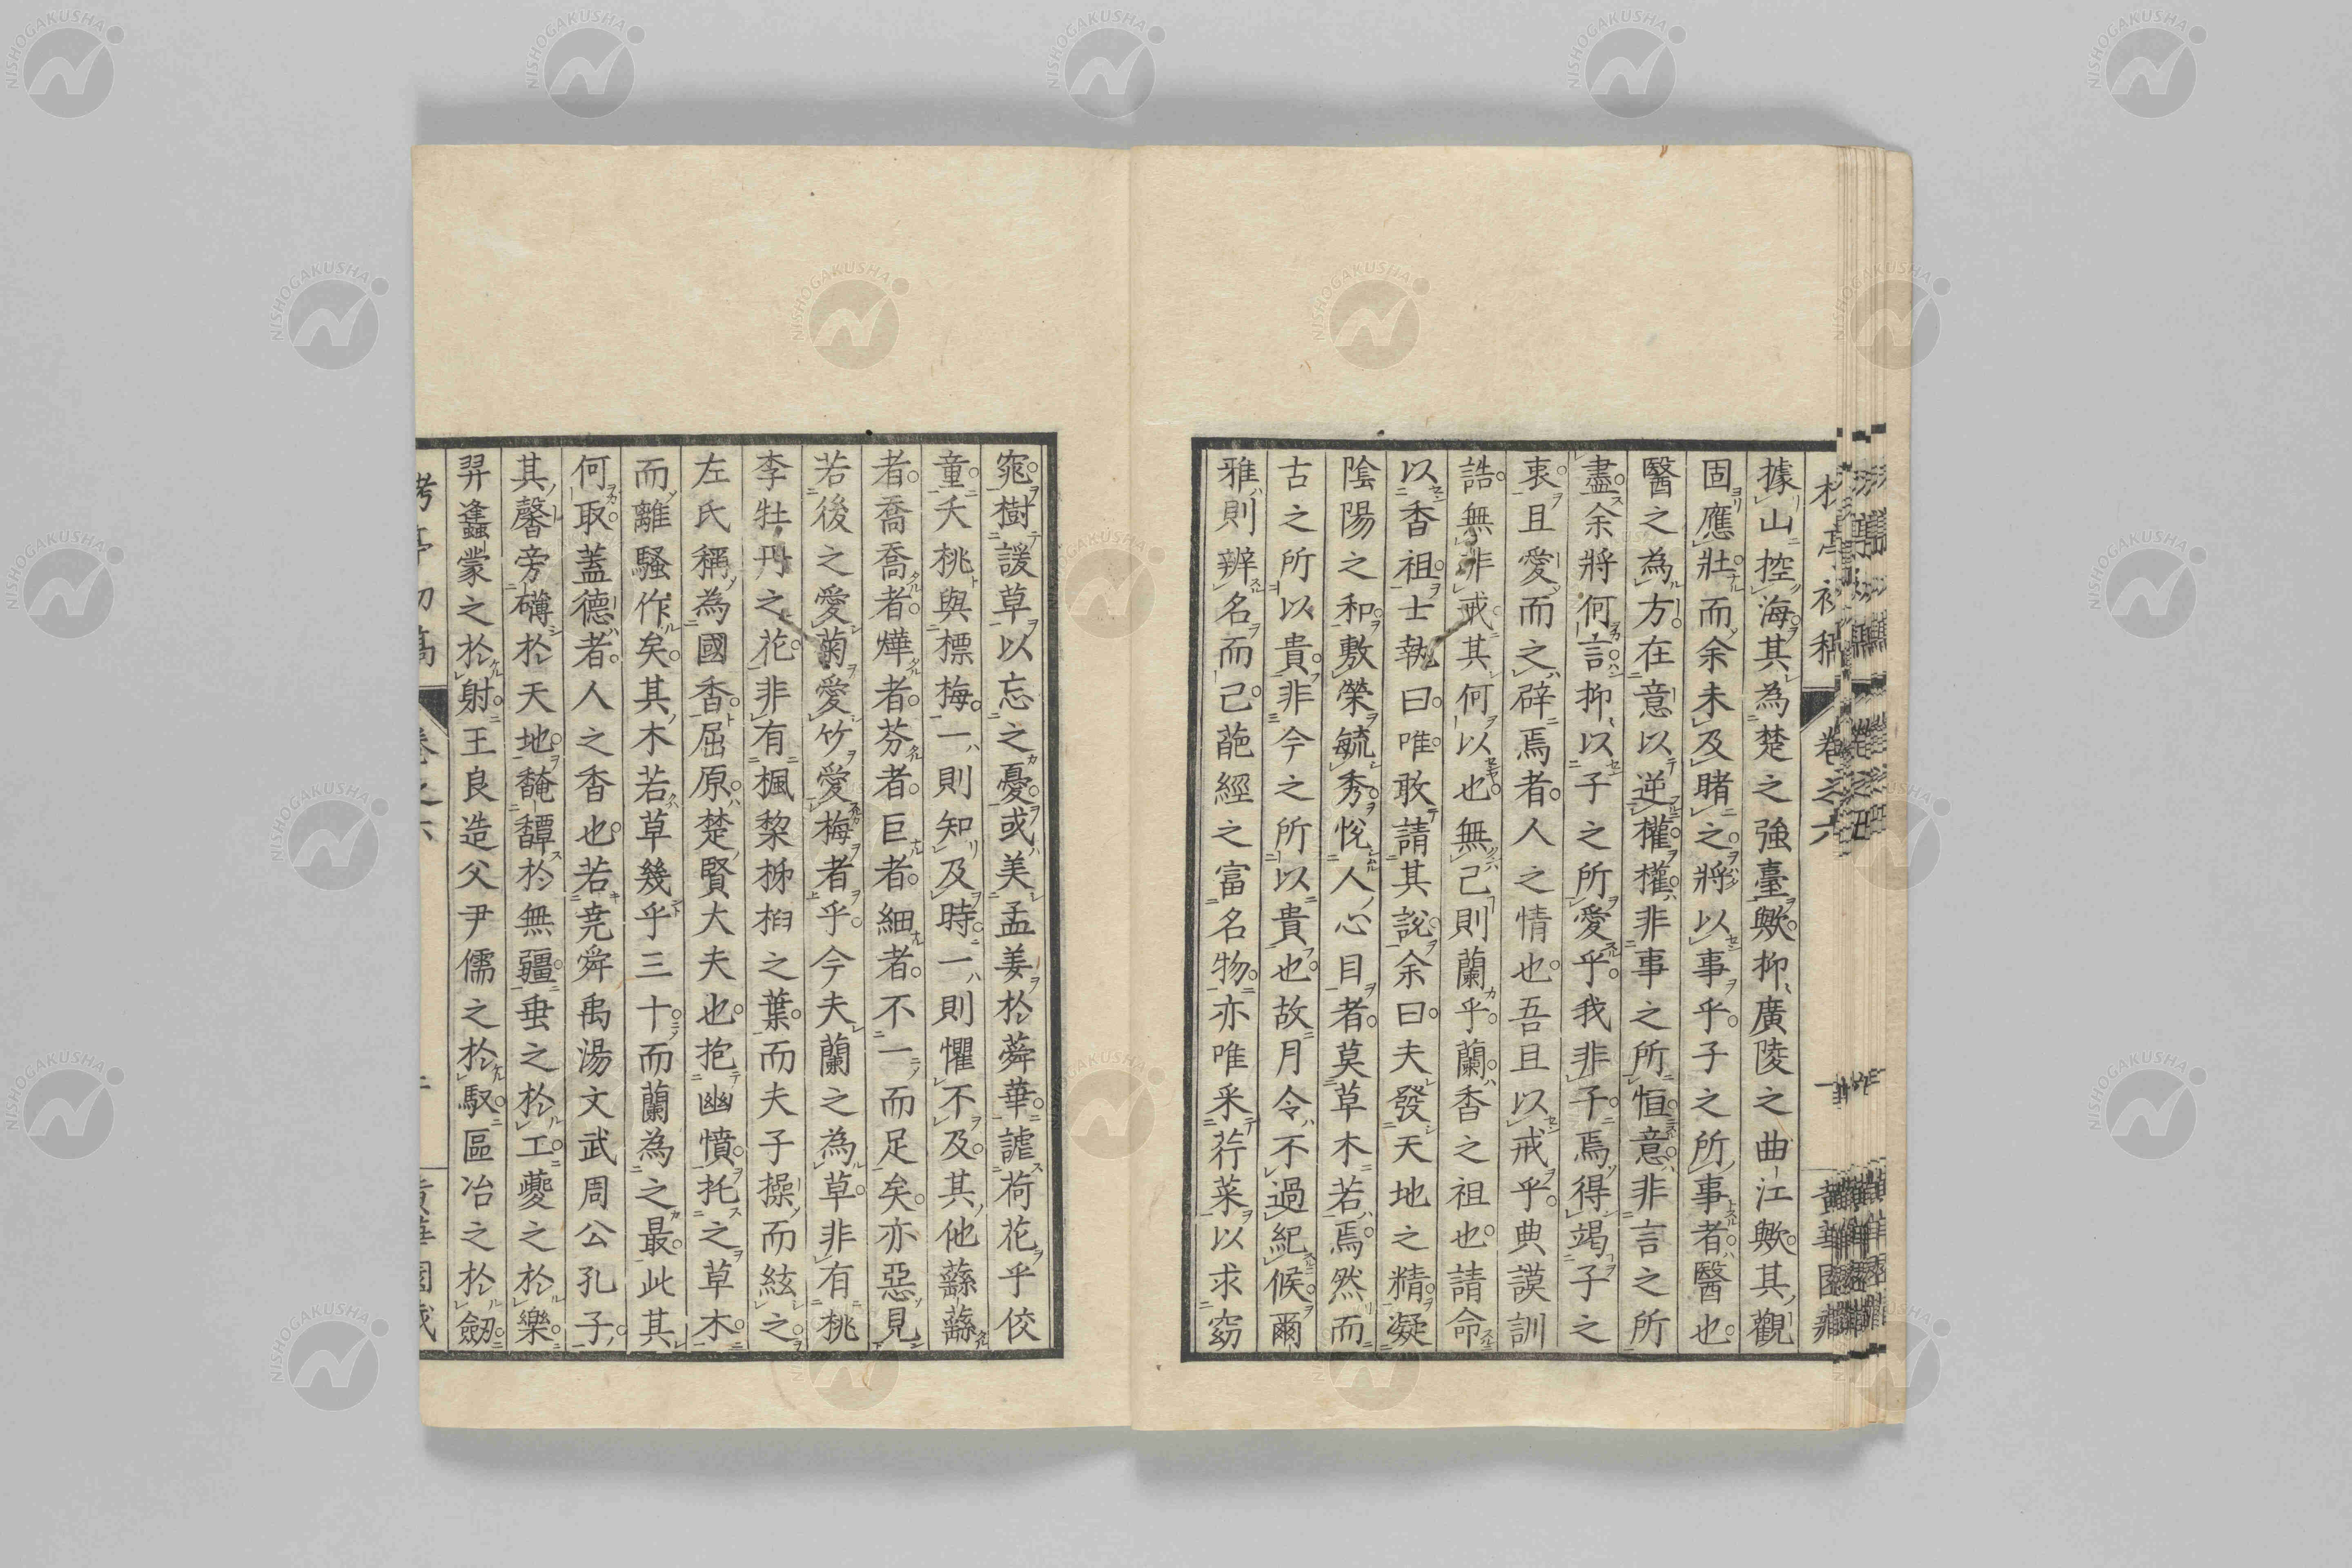 據山控海其為楚之強臺歟抑廣陵之曲江歟其觀
固應壯而余未及睹之將以事乎子之所事者醫也
醫之為方在意以逆權權非事之所恒意非言之所
盡余將何言抑以子之所愛乎我非子焉得竭子之
衷且愛而之辟焉者人之情也吾且以戒乎典謨訓
誥無非戒其何以也無己則蘭乎蘭香之祖也請命
以香祖士執曰唯敢請其說余曰夫發天地之精凝
陰陽之和敷榮毓秀悅人心目者莫草木若焉然而
古之所以貴非今之所以貴也故月令不過紀候爾
雅則辨名而已葩經之富名物亦唯采荇菜以求窈
窕樹諼草以忘之憂或美孟姜於蕣華謔荷花乎佼
童夭桃與標梅一則知及時一則懼不及其他繇繇
者喬喬者燁者芬者巨者細者不一而足矣亦惡見
若後之愛菊愛竹愛梅者乎今夫蘭之為草非有桃
李牡丹之花非有楓棃柹桕之葉而夫子操而絃之
左氏稱為國香屈原楚賢大夫也抱幽憤托之草木
而離騷作矣其木若草幾乎三十而蘭為之最此其
何取蓋德者人之香也若堯舜禹湯文武周公孔子
其馨旁礴於天地馣馟於無疆垂之於工夔之於樂
羿逢蒙之於射王良造父尹儒之於馭區冶之於劒
卷之六
NISHOGAKUSHA